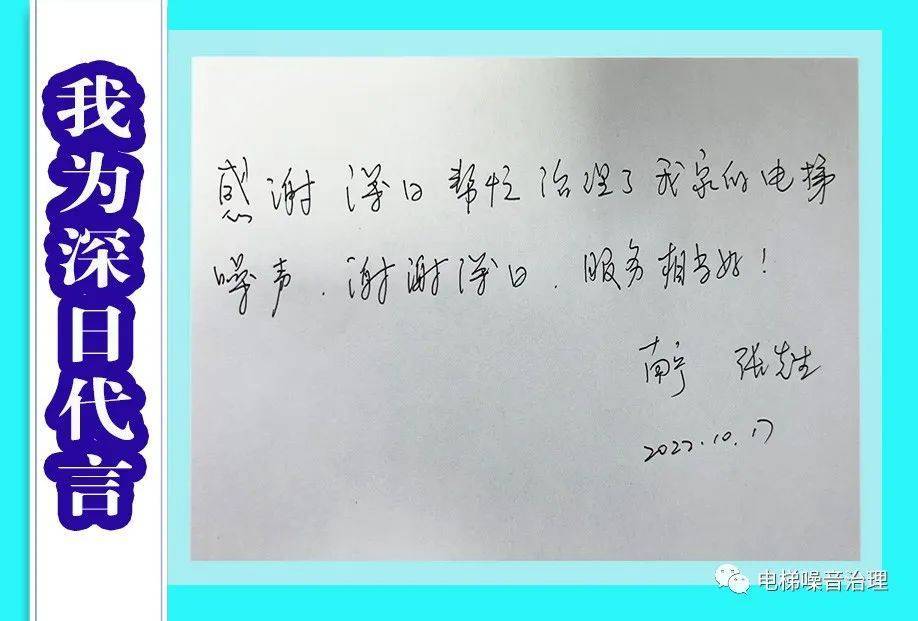 我为深日代言
感谢深日帮忙治理了我家的电梯
噪声.谢谢深日.服务相当好!
南宁 张先生
2022.10.17
电梯噪音治理